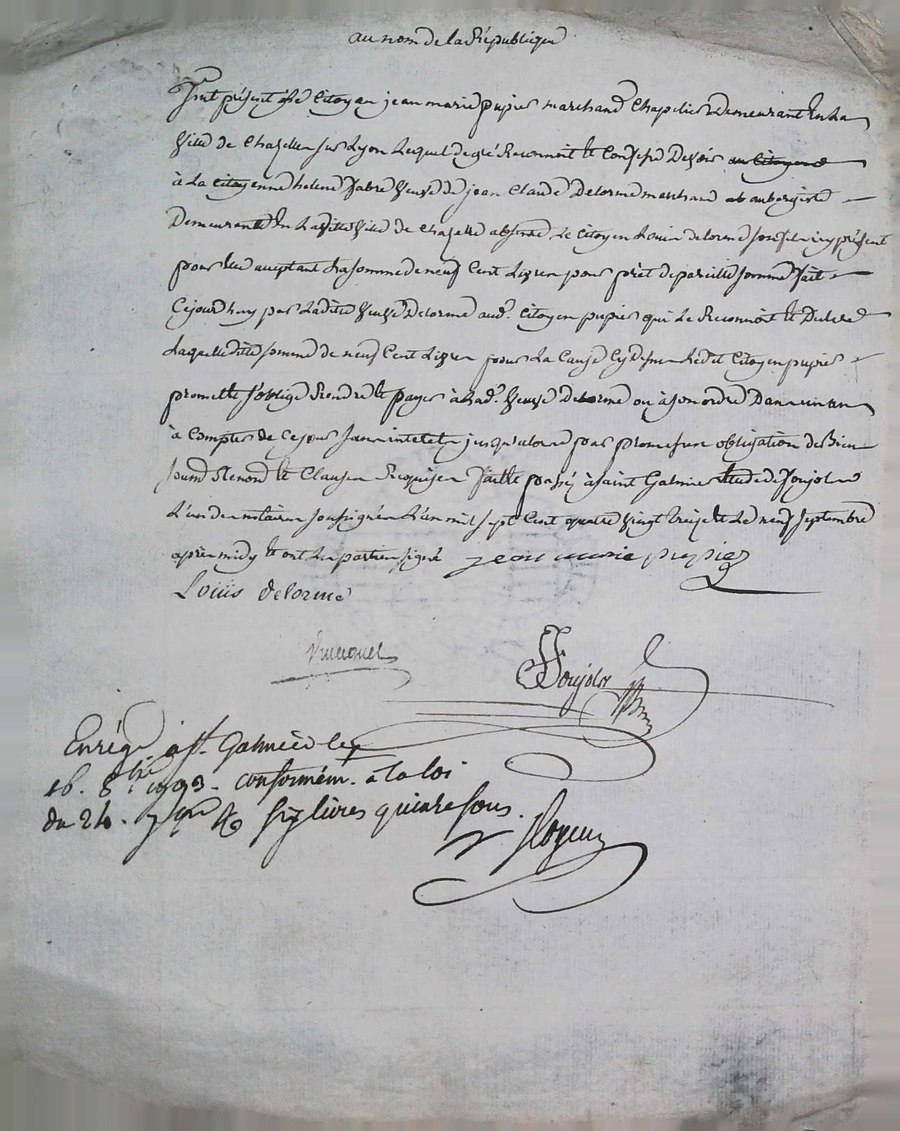 au nom de la République
fut présent le Citoyen jean marie pupier marchand Chapelier Demeurant En La
Ville de Chazelles sur Lyon Lequel de gré Reconnoit et Confesse Devoir au Citoyenne
à La Citoyenne helene fabre Veuve de jean Claude Delorme marchand et aubergiste
Demeurante En Laditte Ville de Chazelle absente Le Citoyen Louis delorme son fils icy présent
pour Elle acceptant La somme de neuf Cent Livres pour prêt de pareille somme fait
Cejourd'huy par Laditte Veuve Delorme aud. Citoyen pupier qui Le Reconnoit et Declare
Laquelle ditte somme de neuf Cent Livres pour La Cause Cy dessus Ledit Citoyen pupier
promet et s'oblige Rendre et payer à Lad. Veuve Delorme ou à son ordre Dans un an
à Compter de Ce jour sans interets jusqu'alors par promesse obligation de Biens
soumis Renonc. et Clauses Requises fait et passé à saint Galmier Etude de foujols
L'un des notaires soussignés L'an mil sept Cent quatre Vingt treize et Le neuf septembre
après midy et ont Les parties signé jean marie pupier
Louis delorme
foujols
Enrég. à st. Galmier le
16. 8bre 1793. conformém. à la loi
du 24. 7bre six livres quinze sous.